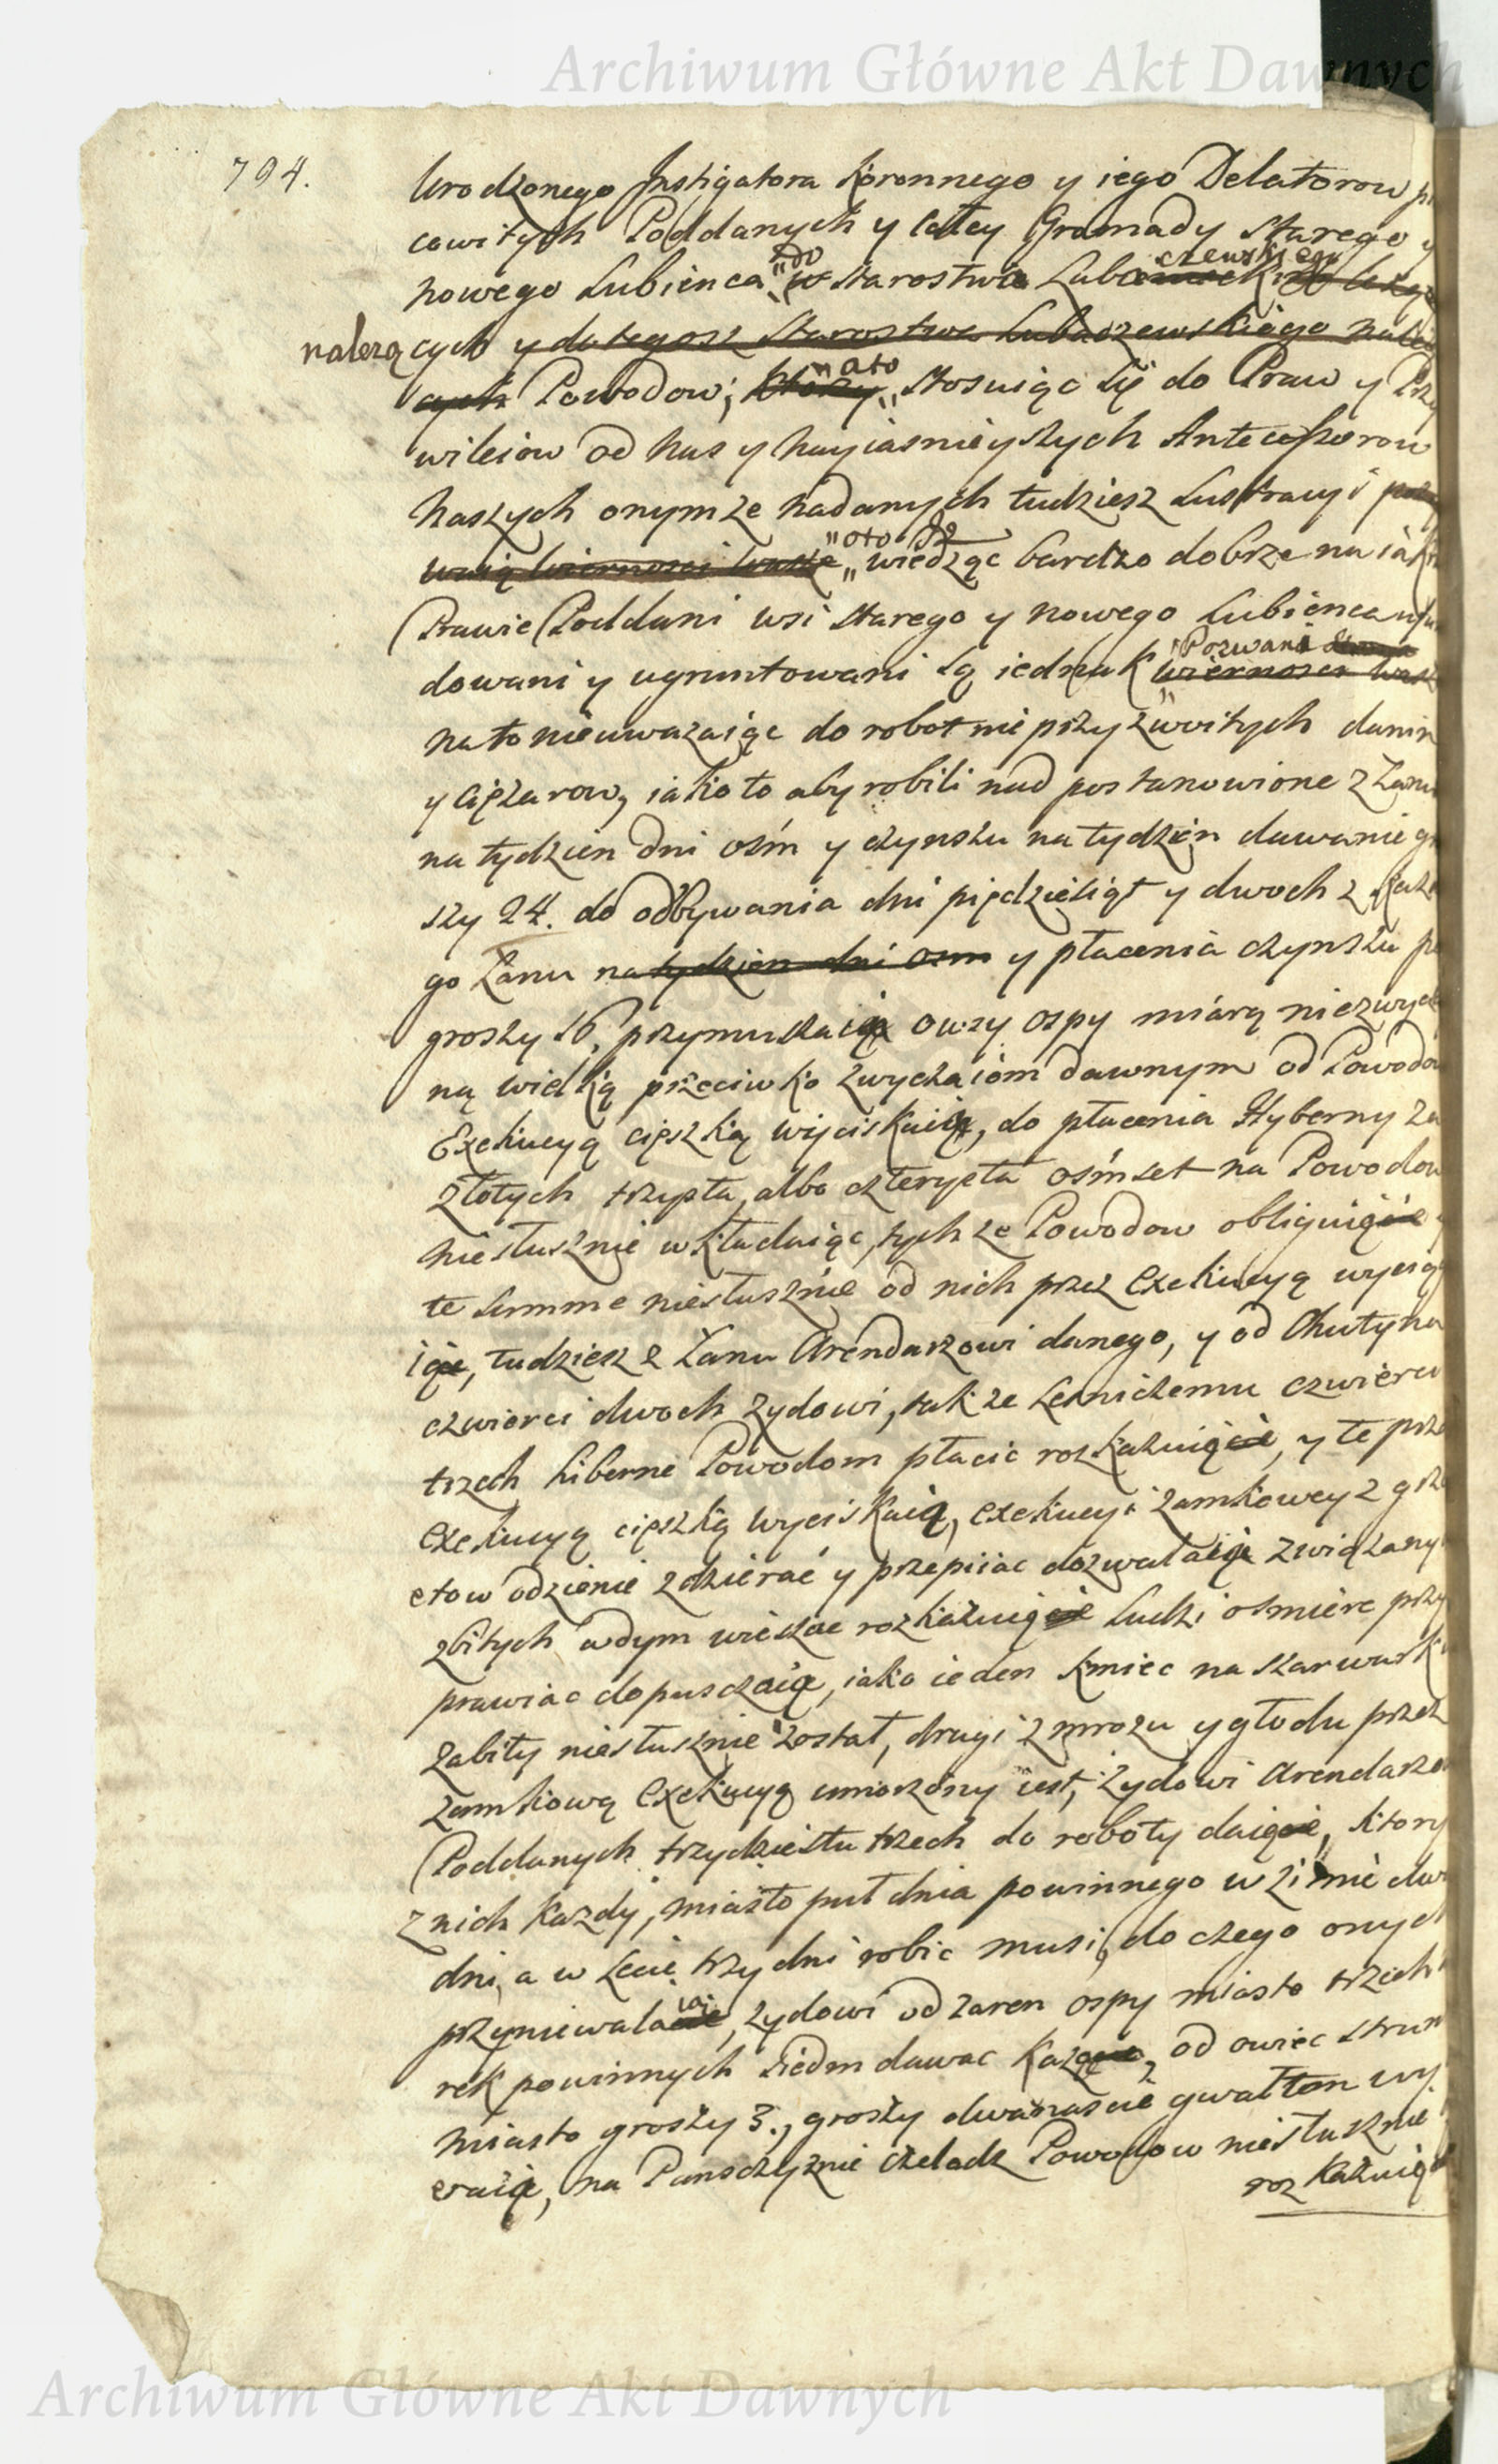 Archiwum Główne Akt Dawnych
794.
Urodzonego Instigatora Koronnego y iego Delatorow
cowitych Poddanych y całey Gromady Starego y
nowego Lubienca do w Starostwa Luba czewskiego
należących y do tegosz Starostwa Lubaczewskiego
cych Powodow; Ktorzy na to stosuiąc się do Praw y Przy
wileiow od Nas y Nayiasnieyszych Antecessorow
Naszych onymze nadanych tudziesz Lustracyi
wierności wasze oto wiedząc bardzo dobrze na iakim
Prawie Poddani wsi Starego y Nowego Lubienca
dowani y ugruntowani są iednak Pozwani wierności
na to nieuwazaiąc do robot nieprzyzwoitych danin
y cięzarow, iako to aby robili nad postanowione z Łanu
na tydzien dni ośm y czynszu na tydzien dawanie gro
szy 24. do odbywania dni pięcdziesiąt y dwoch z każde
go Łanu na tydzien dni osm y płacenia czynszu po
groszy 16, przymuszaią owsy ospy miarą niezwyczay
ną wielką przeciwko zwyczaiom dawnym od Powodow
Exekucyą cięszką wyciskaią, do płacenia Hyberny za
złotych trzysta, albo czterysta ośmset na Powodow
niesłusznie wkładaiąc, tychze Powodow obliguiącie y
te summe niesłusznie od nich przez Exekucyą wyciąga
iąc, tudziesz z Łanu Arendarzowi danego, y od Chutyna
czwierci dwoch Zydowi, takze Lesniczemu czwierci
trzech hiberne Powodom płacic roskazuiącie, y te przez
exekucyą cięszką wyciskaią, exekucyi zamkowey z grzb
etow odzienie zdzierać y przepiiac dozwalaią związanych
zbitych wdym wieszac rozkazuiącie Ludzi o smierc przy
prawiac dopuszczaią, iako ieden kmiec na szarwarku
zabity niesłusznie został, drugi z mrozu y głodu przez
zamkową Exekucyą umorzony iest, Zydowi Arendarzowi
Poddanych trzydziestu trzech do roboty daiącie, ktory
z nich Kazdy, miasto puł dnia powinnego w zimie dwa
dni, a w Lecie trzy dni robic musi, do czego onych
przyniewalaią, Zydowi od zaren ospy miasto trzech
rek powinnych siedm dawac Kazącie, od owiec strun
miasto groszy 3., groszy dwanascie gwałtem wy
eraią, na Panszczyznie czeladz Powodow niesłusznie
rozkazuią
Archiwum Główne Akt Dawnych